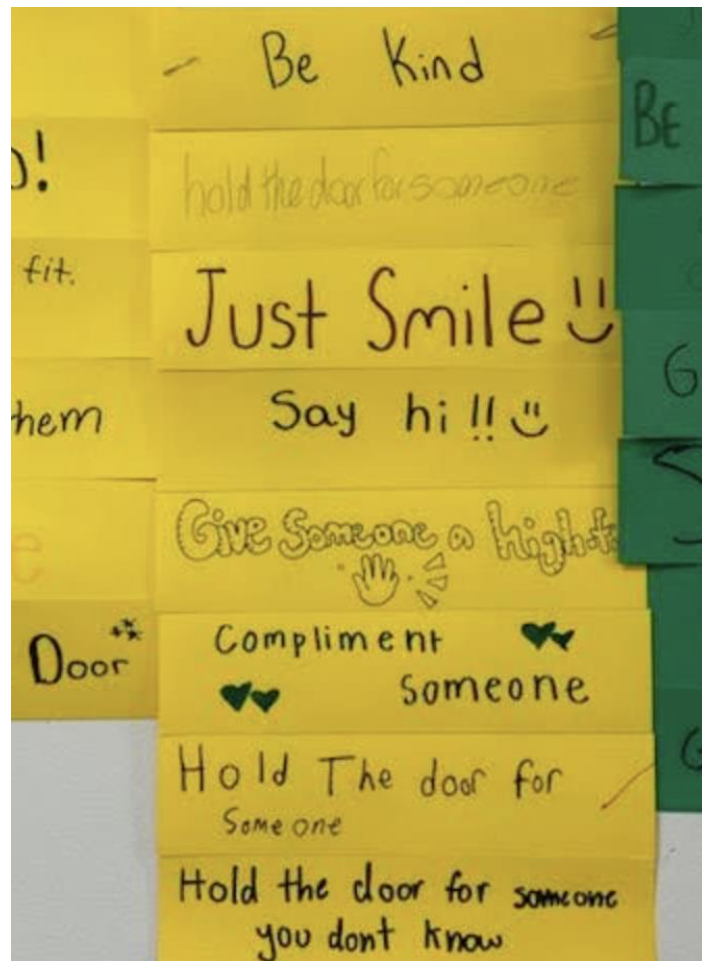 Be Kind
hold the door for someone
Just Smile
Say hi!!
Give Someone a
Compliment
someone
Hold The door for
Someone
Hold the door for someone
you dont know
fit.
Door
BE